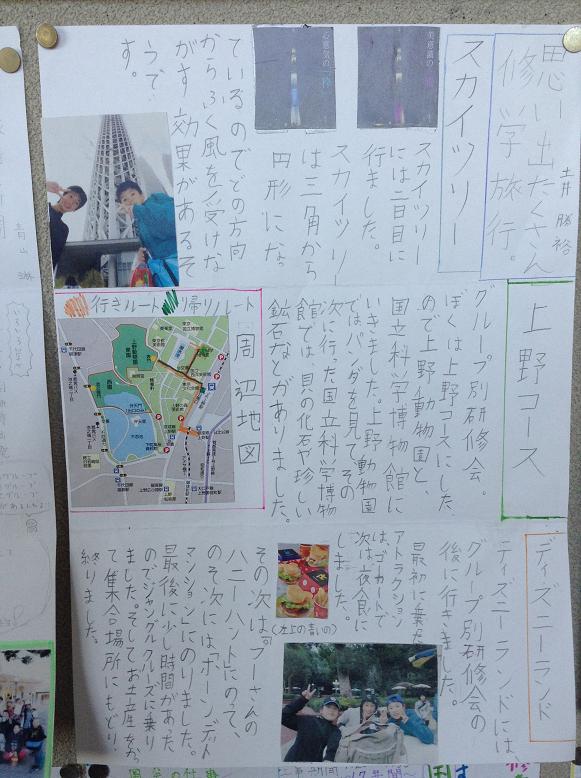 思い出たくさん
修学旅行。
スカイツリー
スカイツリー
には二日目に
行きました。
スカイツリー
は三角から
円形になっ
ているのでどの方向
からふく風を受けな
がす効果があるそ
うです。
美意識の
心意気の
上野コース
グループ別研修会。
ぼくは上野コースにした
ので上野動物園と
国立科学博物館に
いきました。上野動物園
ではパンダを見て、その
次に行った国立科学博物
館では、貝の化石や珍しい
鉱石などがありました。
周辺地図
行きルート
帰りルート
上野動物園
ディズニーランド
ディズニーランドには、
グループ別研修会の
後に行きました。
最初に乗った
アトラクション
は、ゴカートで
次は夜食に
しました。
(左上の青いの)
その次は『プーさんの
ハニーハント』にのって、
その次には『ホーンテッド
マンション』にのりました。
最後に少し時間があった
のでジャングルクルーズに乗り
ました。そしてお土産をかっ
て集合場所にもどり、
終りました。